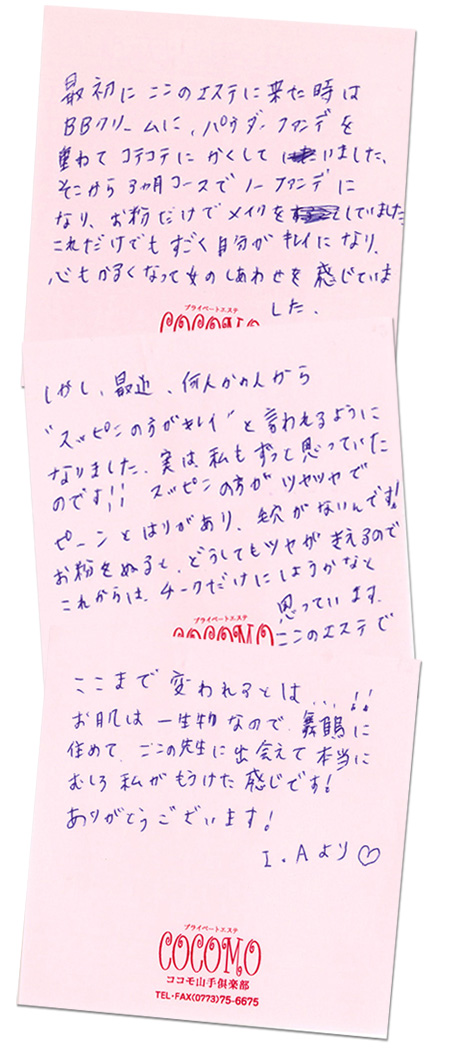 最初に ここのエステに 来た時は
BBクリームに、パウダーファンデを
重ねて コテコテに かくして いました、
そこから 3ヵ月コースで ノーファンデに
なり、お粉だけで メイクを していました
これだけでも すごく自分が キレイになり、
心もかるくなって女のしあわせを 感じていま
した、
プライベートエステ
COCOMO
しかし、最近、何人かの人から
"スッピンの方がキレイ"と 言われるように
なりました、実は 私も ずっと思っていた
のです!! スッピンの方が ツヤツヤで
ピーンと はりがあり、毛穴がないんです!
お粉をぬると、どうしても ツヤが きえるので
これからは、チークだけに しようかなと
思っています、
プライベートエステ
COCOMO
ここのエステで
ここまで 変われるとは...!!
お肌は 一生物なので、舞鶴に
住めて、ここの先生に 出会えて 本当に
むしろ 私が もうけた 感じです!
ありがとうございます!
I.Aより♡
プライベートエステ
COCOMO
ココモ山手倶楽部
TEL・FAX(0773)75-6675